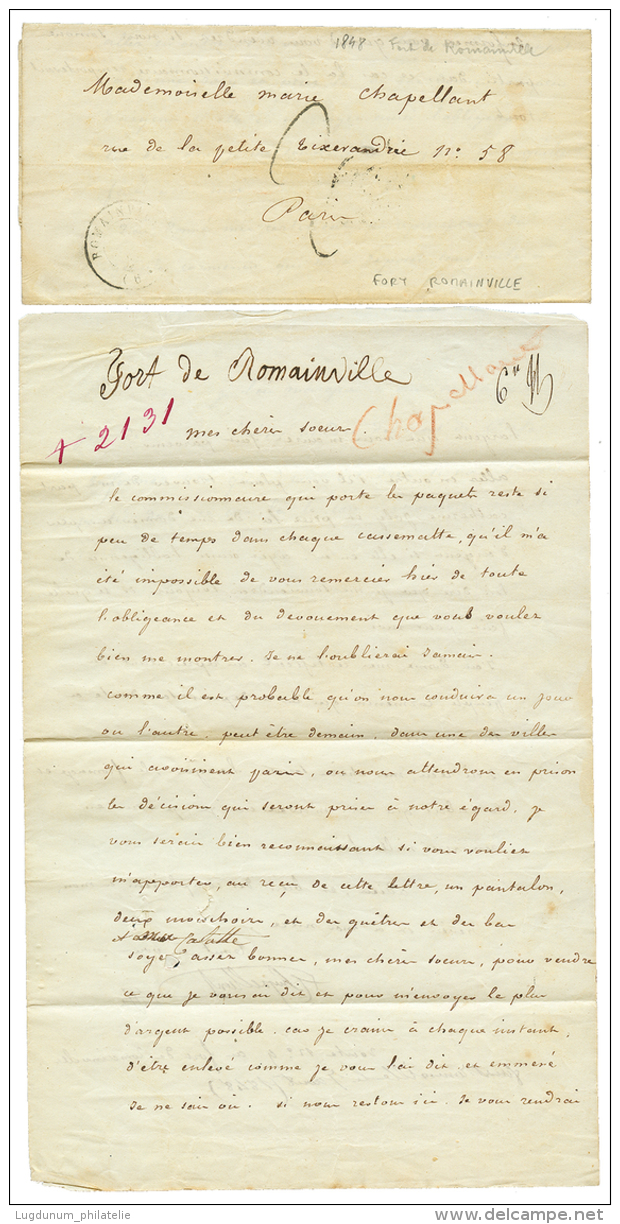 1848 Fort de Romainville
Mademoiselle marie Chapellant
rue de la petite tixerandrie n° 58
Paris
ROMAINV
FORT ROMAINVILLE
Fort de Romainville
+ 2131
Chapellant
mes chères soeurs.
le commissionnaire qui porte les paquets reste si
peu de temps dans chaque cassematte, qu'il m'a
été impossible de vous remercier hier de toute
l'obligeance et du dévouement que vous voulez
bien me montrer. Je ne l'oublierai Jamais.
comme il est probable qu'on nous conduira un jour
ou l'autre, peut être demain, dans une des villes
qui avoisinent paris, ou nous attendrons en prison
les décisions qui seront prises à notre égard, je
vous serais bien reconnaissant si vous vouliez
m'apporter, au reçu de cette lettre, un pantalon,
deux mouchoirs, et des guêtres et des bas
calotte
soyez assez bonnes, mes chères soeurs, pour vendre
ce que je vous ai dit et pour m'envoyer le plus
d'argent possible. car je crains à chaque instant
d'être enlevé comme je vous l'ai dit et emmené
Je ne sais où. si nous restons ici. Je vous rendrai
Lugdunum_philatelie
delcampe.net